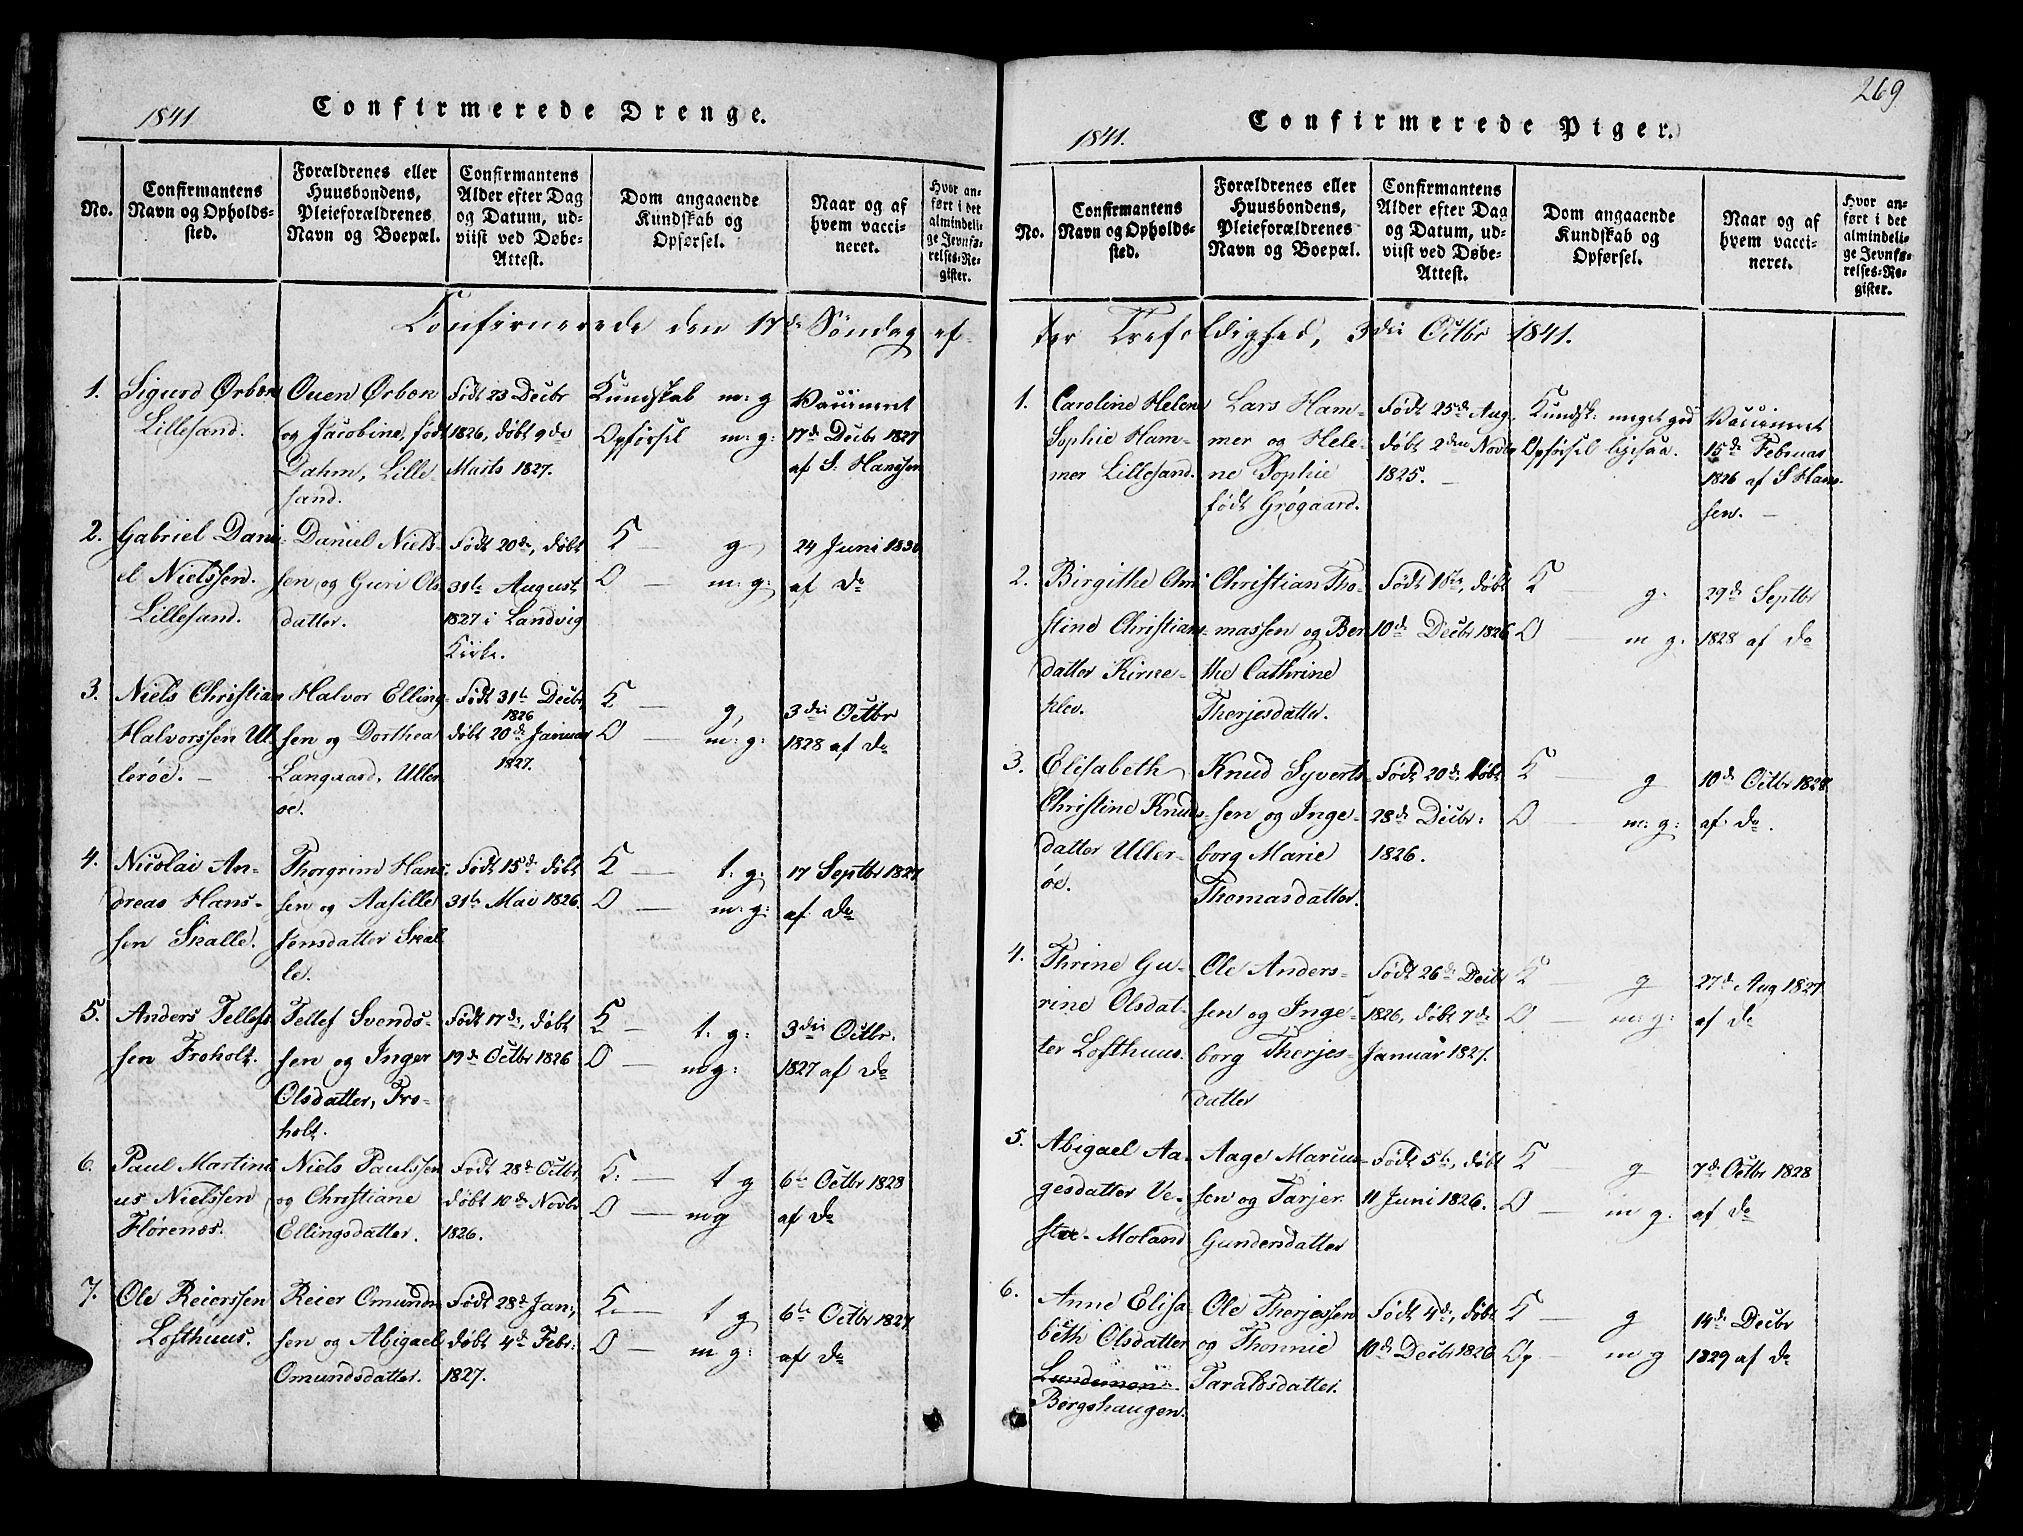 1841 Confirmerede Drenge.
No.
Confirmantens
Navn og Opholds-
sted.
Forældrenes eller
Huusbondens,
Pleieforældrenes
Navn og Boepæl.
Confirmantens
Alder efter Dag
og Datum, ud-
viist ved Døbe-
Attest.
Dom angaaende
Kundskab og
Opførsel.
Naar og af
hvem vacci-
neret.
Hvor an-
ført i det
almindeli-
ge Jevnfø-
relses-Re-
gister.
Confirmerede den 17de Søndag ef-
1.
Sigurd Ørbæn
Lillesand.
Ouen Ørbæn
og Jacobine, født
Dahm, Lille
sand.
Født 23 Decbr
1826, døbt 9de
Marts 1827.
Kundskab m: g
Opførsel m: g:
Vaccineret
17de Decbr 1827
af S: Hanssen
2.
Gabriel Dani-
el Nielssen.
Lillesand.
Daniel Niels-
sen og Guri Ols
datter.
Født 20de, døbt
31te August
1827 i Landvig
Kirke.
K — g
O — m: g:
24 Juni 1830
af do
3.
Niels Christian
Halvorssen Ul
lerøe. —
Halvor Elling-
sen og Dorthea
Langaard, Uller
øe.
Født 31te Decbr,
1826
døbt 20de Januar
1827.
K — g,
O — m: g:
3die Octbr
1828 af do
4.
Nicolai An-
dreas Hans-
sen Skalle.
Thorgrim Hans
sen og Aasille
Jensdatter Skal
le.
Født 15de, døbt
31te Mai 1826.
K — t: g:
O — m: g:
17 Septbr 1827
af do
5.
Anders Tellefs
sen Froholt.
Tellef Svends-
sen og Inger
Olsdatter, Fro-
holt.
Født 17de, døbt
19de Octbr 1826
K — t: g:
O — m g:
3die Octbr.
1827 af do
6.
Paul Martini
us Nielssen
Flørenæs.
Niels Paulssen
og Christiane
Ellingsdatter.
Født 28de Octbr,
døbt 10de Novbr
1826.
K: — t g
O — m g
6te Octbr 1828
af do
7.
Ole Reierssen
Lofthuus.
Reier Omundn
sen og Abigael
Omundsdatter.
Født 28de Jan:,
døbt 4de Febr:
1827.
K — t g
O — m g:
6te Octbr 1827
af do
269
1841. Confirmerede Piger.
No.
Confirmantens
Navn og Opholds-
sted.
Forældrenes eller
Huusbondens,
Pleieforældrenes
Navn og Boepæl.
Confirmantens
Alder efter Dag
og Datum, ud-
viist ved Døbe-
Attest.
Dom angaaende
Kundskab og
Opførsel.
Naar og af
hvem vacci-
neret.
Hvor an-
ført i det
almindeli-
ge Jevnfø-
relses-Re-
gister.
ter Trefoldighed, 3die Octbr 1841.
1.
Caroline Helene
Sophie Ham-
mer Lillesand.
Lars Ham-
mer og Hele-
ne Sophie
født Grøgaard.
Født 25de Aug.
døbt 2den Novbr
1825. —
Kundsk: meget god
Opførsel ligesaa.
Vaccineret
15de Februar
1826 af S Hans-
sen. —
2.
Birgithe Chri
stine Christians-
datter Kirke-
klev.
Christian Tho-
massen og Ber
the Cathrine
Therjesdatter.
Født 1ste, døbt
10de Decbr 1826
K — g.
O — m g:
29de Septbr
1828 af do
3.
Elisabeth
Christine Knuds-
datter Uller-
øe.
Knud Syverts-
sen og Inge-
borg Marie
Thomasdatter.
Født 20de døbt
28de Decbr:
1826.
K — g
O — m: g:
10de Octbr 1828
af do.
4.
Thrine Gu-
rine Olsdat-
ter Lofthuus.
Ole Anders-
sen og Inge-
borg Therjes-
datter
Født 26de Decbr
1826, døbt 7de
Januar 1827.
K — g
O — m: g:
27de Aug 1827
af do
5.
Abigael Aa-
gesdatter Ve-
stre-Moland
Aage Marcus-
sen og Tarjer
Gundersdatter
Født 5te, døbt
11 Juni 1826.
K — g
O — m g.
7de Octbr 1828
af do
6.
Anne Elisa-
beth Olsdatter
Børgshaugen.
Ole Therjessen
og Thonnie
Taraldsdatter.
Født 4de, døbt
10de Decbr 1826
K — g
Op — m g
14de Decbr
1829 af do